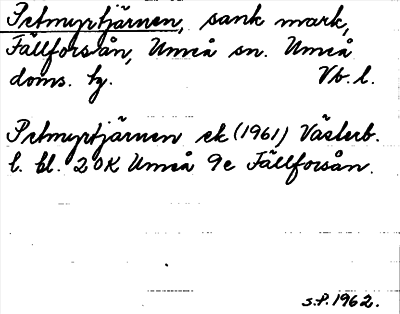 Petmyrtjärnen, sank mark,
Fällforsån, Umeå sn. Umeå
doms. hg. Vb. l.
Petmyrtjärnen ek (1961) Västerb.
l. bl. 20K Umeå 9e Fällforsån.
S.P. 1962.